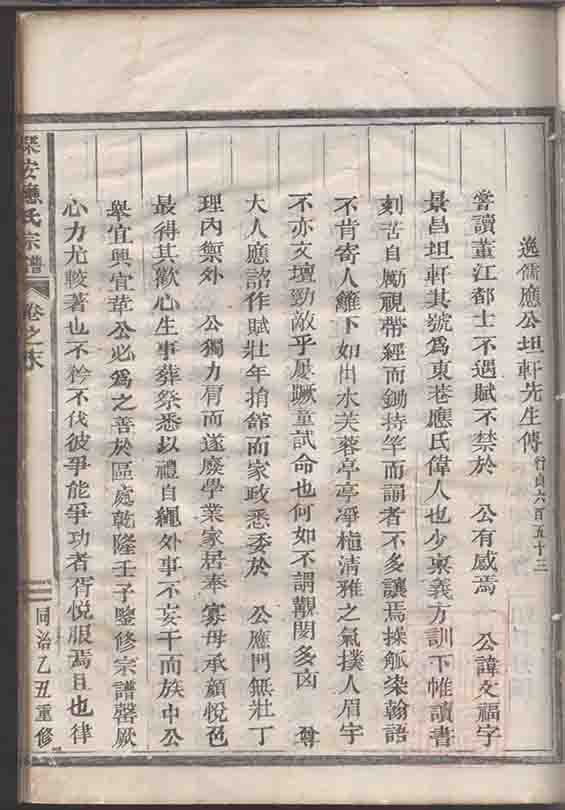 逸儒應公坦軒先生傳行貞六百五十三
嘗讀董江都士不遇賦不禁於　公有感焉　公諱文福字
景昌坦軒其號爲東巷應氏偉人也少稟義方訓下帷讀書
刻苦自勵視帶經而鋤持竿而誦者不多讓焉操觚染翰語
不肯寄人籬下如出水芙蓉亭亭凈植清雅之氣撲人眉宇
不亦文壇勁敵乎屢蹶童試命也何如不謂覯閔多凶　尊
大人應詔作賦壯年捐館而家政悉委於　公應門無壯丁
理內禦外　公獨力肩而遂廢學業家居奉寡母承顏悅色
最得其歡心生事葬祭悉以禮自繩外事不妄干而族中公
舉宜興宜革公必爲之善於區處乾隆壬子鑒修宗譜罄厥
心力尤較著也不矜不伐彼爭能爭功者胥悅服焉且也律
琹安應氏宗譜
卷之末
同治乙丑重修